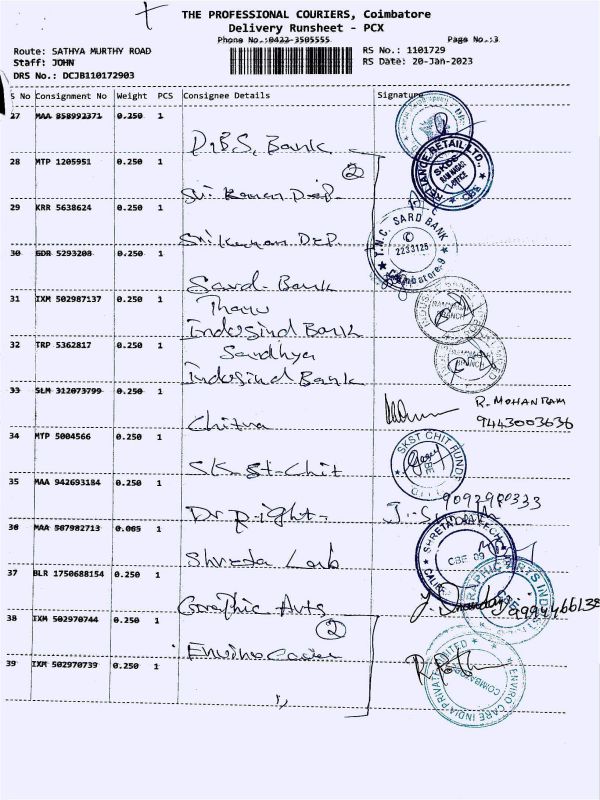 THE PROFESSIONAL COURIERS, Coimbatore
Delivery Runsheet - PCX
Phone No.:0422-3505555 Page No.:3
Route: SATHYA MURTHY ROAD RS No.: 1101729
Staff: JOHN RS Date: 20-Jan-2023
DRS No.: DCJB110172903
S No Consignment No Weight PCS Consignee Details Signature
27 MAA 858992371 0.250 1
D.B.S. Bank
28 MTP 1205951 0.250 1
2
RELIANCE RETAIL LTD.,
CBE
29 KRR 5638624 0.250 1
T.N.C. SARD BANK
2233125
Coimbatore-9
30 GDR 5293208 0.250 1
Sard-Bank
31 IXM 502987137 0.250 1
Indusind Bank
32 TRP 5362817 0.250 1
Sandhya
Indusind Bank
33 SLM 312073799 0.250 1
R. MOHANRAM
9443003636
Chitra
34 MTP 5004566 0.250 1
SKST CHIT FUNDS
SKST-Chit
35 MAA 942693184 0.250 1
Dr Right
36 MAA 507982713 0.065 1
Shreta Lab
37 BLR 1750688154 0.250 1
GRAPHIC ARTS
Graphic Arts
38 IXM 502970744 0.250 1
2
Enviro Care
39 IXM 502970739 0.250 1
ENVIRO CARE INDIA PRIVATE LIMITED